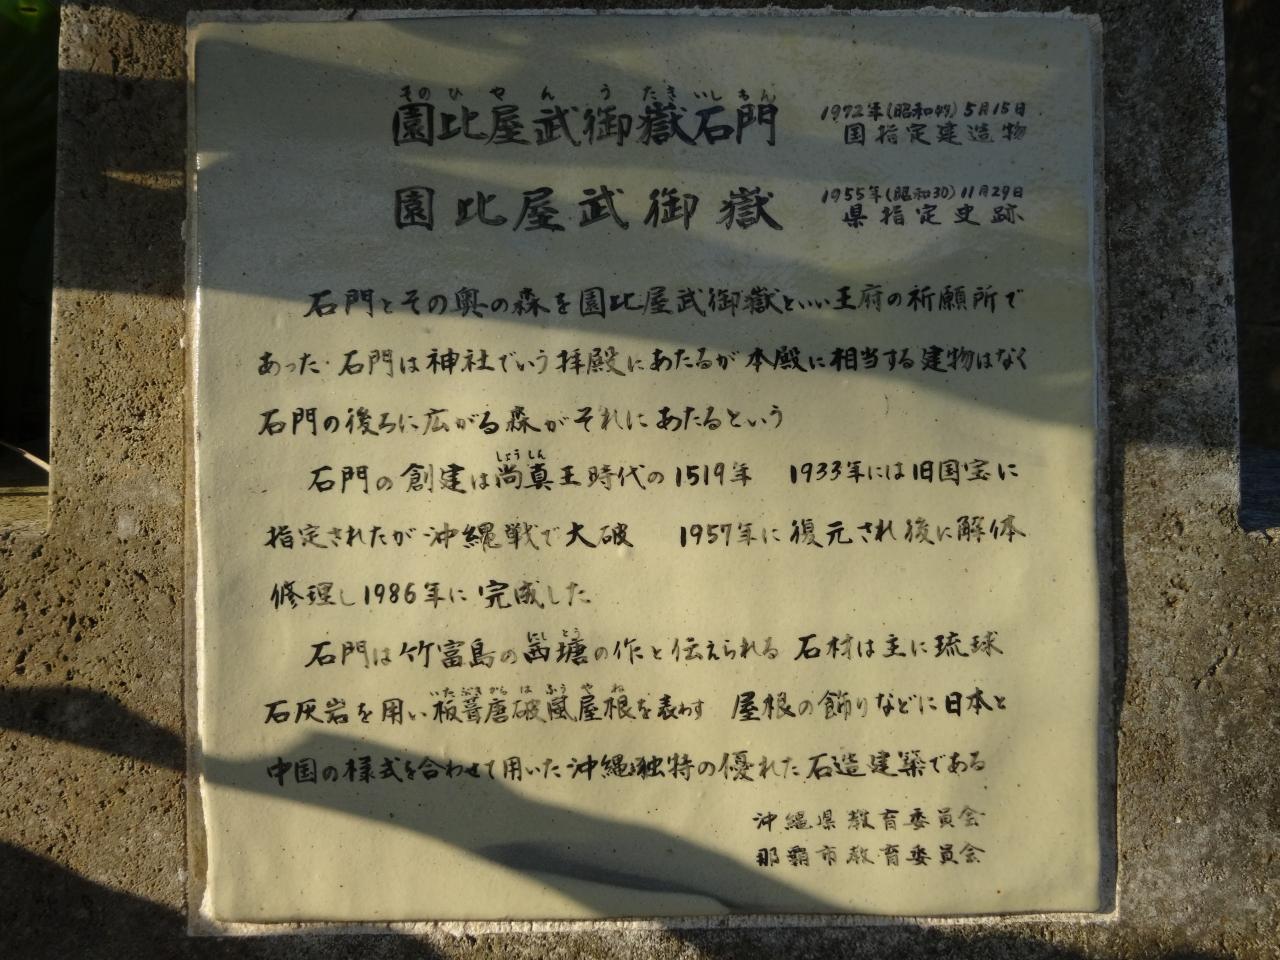 そのひやんうたきいしもん
園比屋武御嶽石門 1972年(昭和47)5月15日
国指定建造物
園比屋武御嶽 1955年(昭和30)11月29日
県指定史跡
石門とその奥の森を園比屋武御嶽といい王府の祈願所で
あった.石門は神社でいう拝殿にあたるが本殿に相当する建物はなく
石門の後ろに広がる森がそれにあたるという
しょうしん
石門の創建は尚真王時代の1519年 1933年には旧国宝に
指定されたが沖縄戦で大破 1957年に復元され後に解体
修理し1986年に完成した
にしとう
石門は竹富島の西塘の作と伝えられる 石材は主に琉球
いたぶきからはふうやね
石灰岩を用い板葺唐破風屋根を表わす 屋根の飾りなどに日本と
中国の様式を合わせて用いた沖縄独特の優れた石造建築である
沖縄県教育委員会
那覇市教育委員会